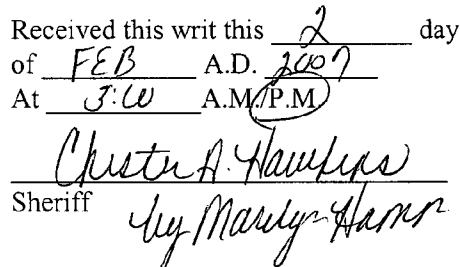 Received this writ this 2 day
of FEB A.D. 2007
At 3:00 A.M./P.M.
Chester A. Hawkins
Sheriff by Marilyn Hamm